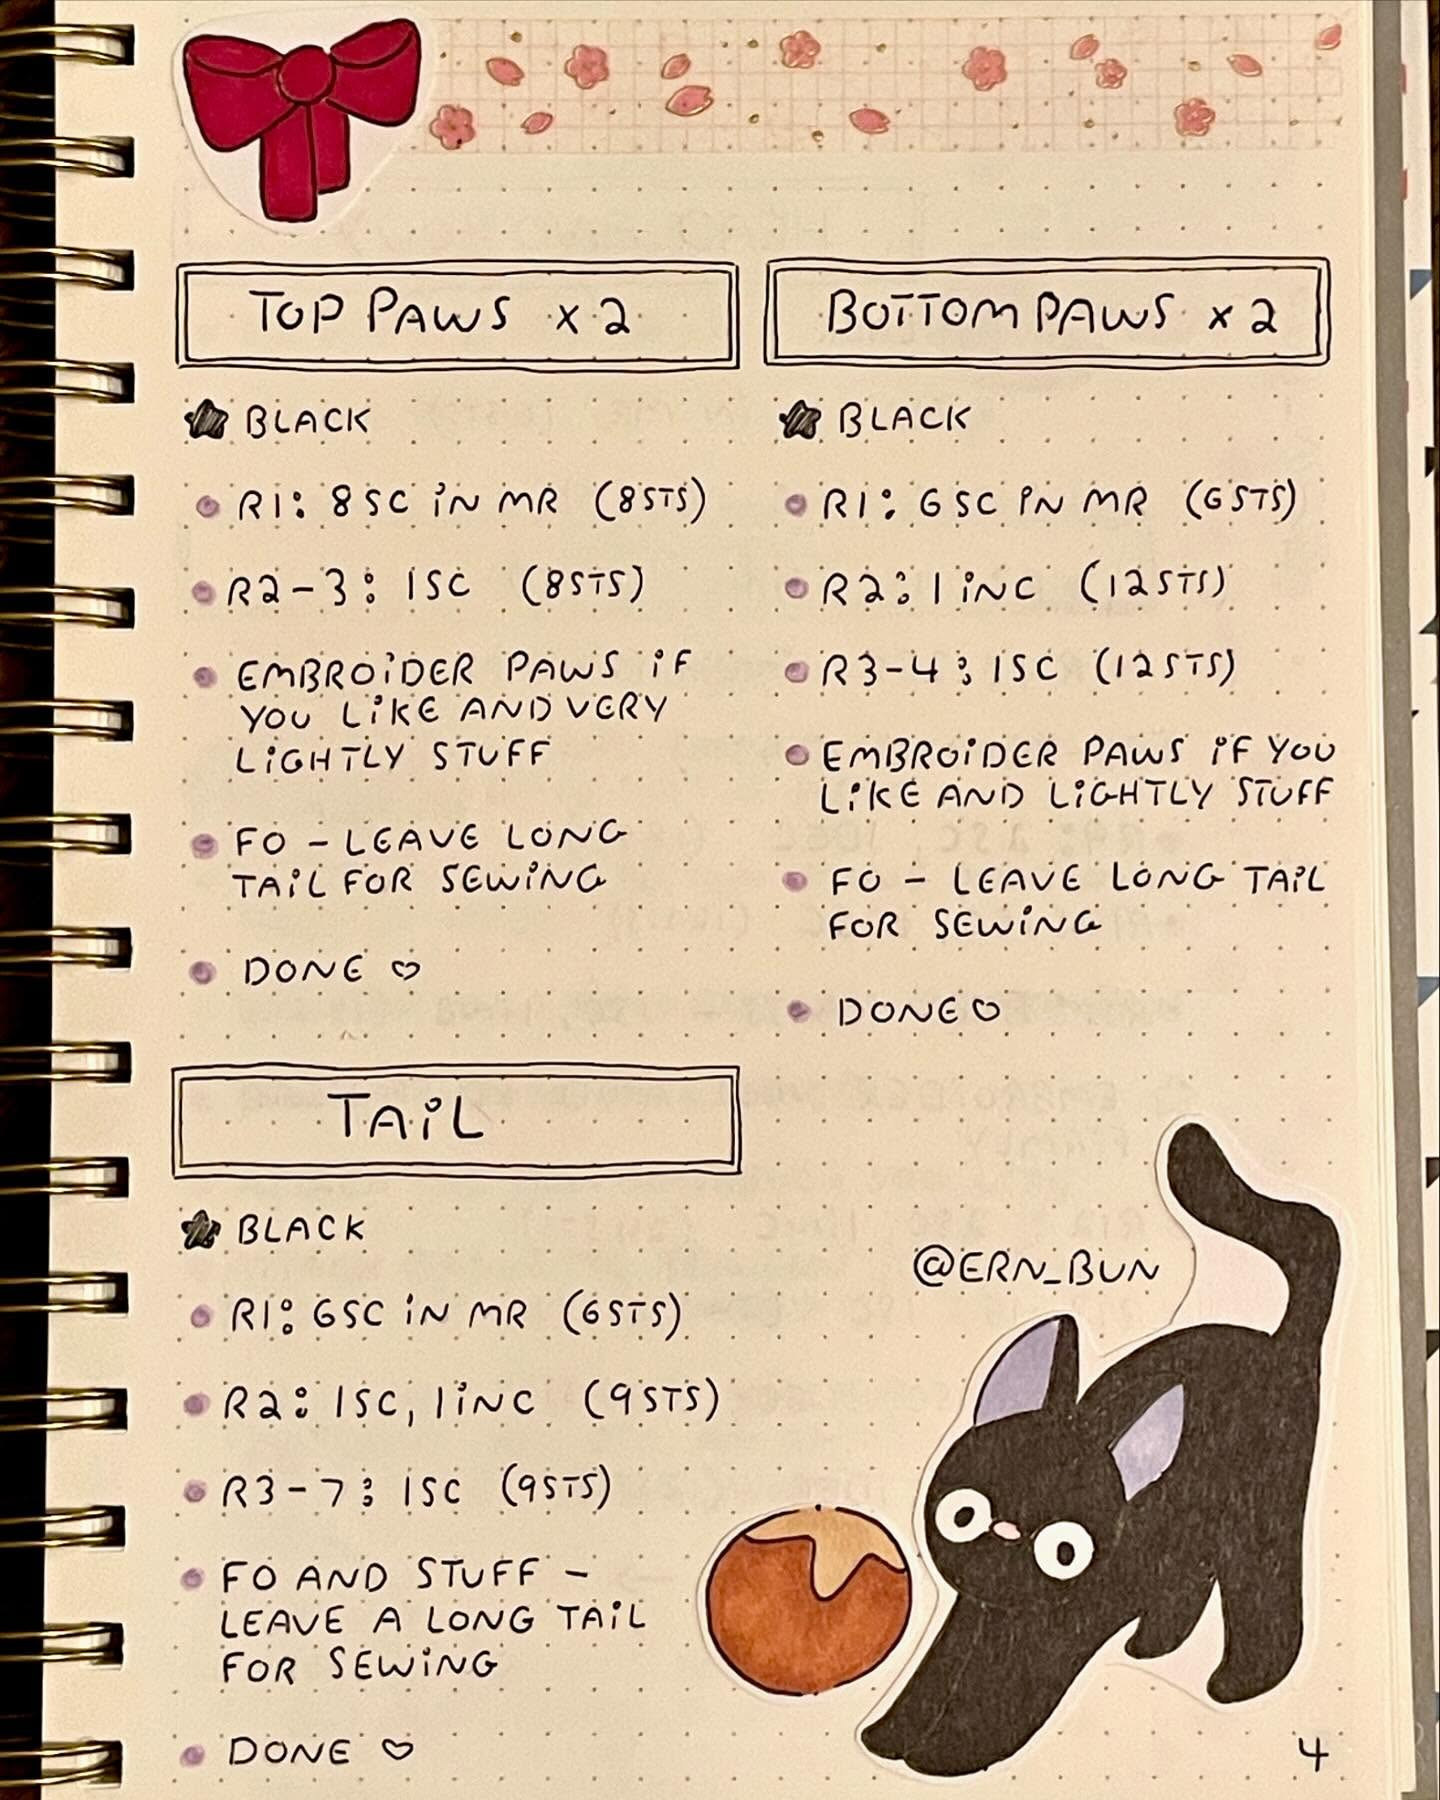 TOP PAWS x 2
BLACK
R1: 8 SC iN MR (8STS)
R2-3: 1SC (8STS)
EMBROiDER PAWS iF
YOU LiKE AND VERY
LiGHTLY STUFF
FO - LEAVE LONG
TAiL FOR SEWiNG
DONE ♡
BOTTOM PAWS x 2
BLACK
R1: 6 SC iN MR (6STS)
R2: 1 iNC (12STS)
R3-4: 1SC (12STS)
EMBROiDER PAWS iF YOU
LiKE AND LiGHTLY STUFF
FO - LEAVE LONG TAiL
FOR SEWiNG
DONE ♡
TAiL
BLACK
R1: 6SC iN MR (6STS)
R2: 1SC, 1iNC (9STS)
R3-7: 1SC (9STS)
FO AND STUFF -
LEAVE A LONG TAiL
FOR SEWiNG
DONE ♡
@ERN_BUN
4